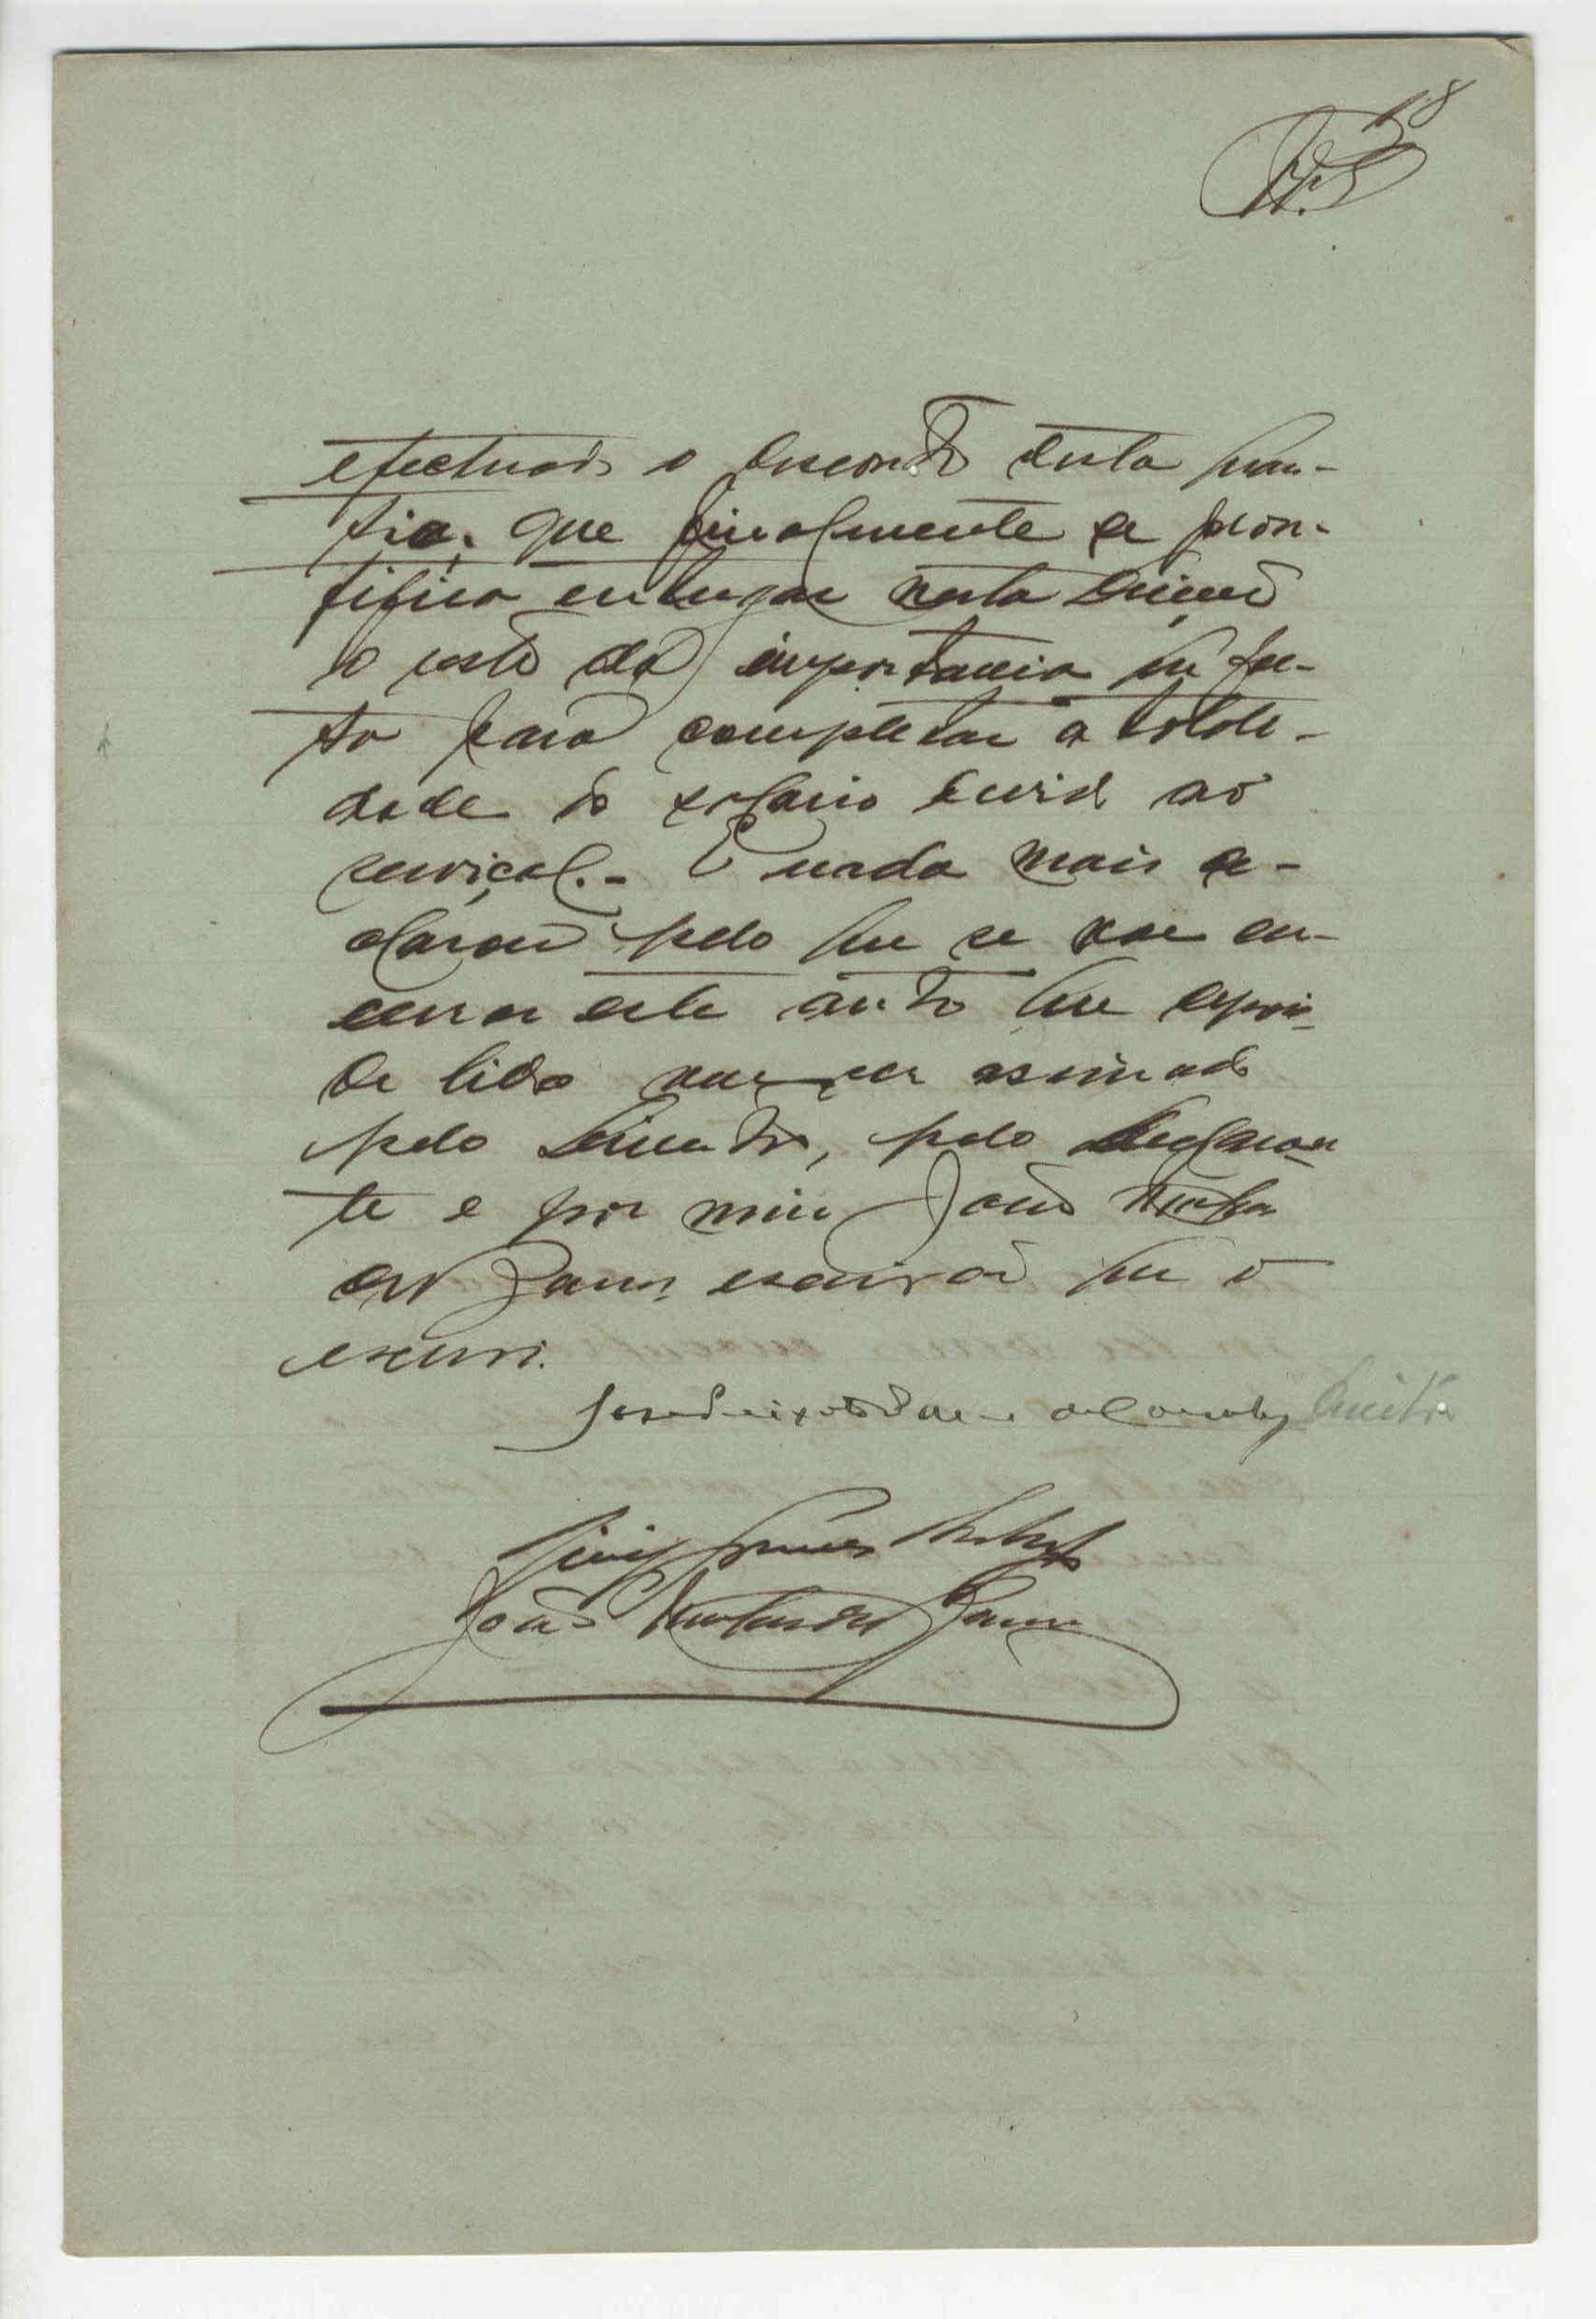 18
efectuado o desconto desta quan-
tia. que finalmente se pron-
tifica entregar nesta Direcção
o resto da importancia em fal-
ta para completar a totali-
dade do salario devido ao
serviçal. - E nada mais de-
clarou pelo que se vae en-
cerrar este auto que depois
de lido vae ser assinado
pelo Director, pelo declaran
te e por mim João
escrivão que o
escrevi.
Director
João